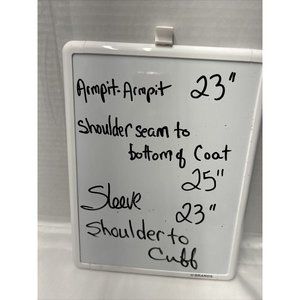 Armpit-Armpit 23"
Shoulder seam to
bottom of Coat
25"
Sleeve 23"
Shoulder to
Cuff
BRANDS